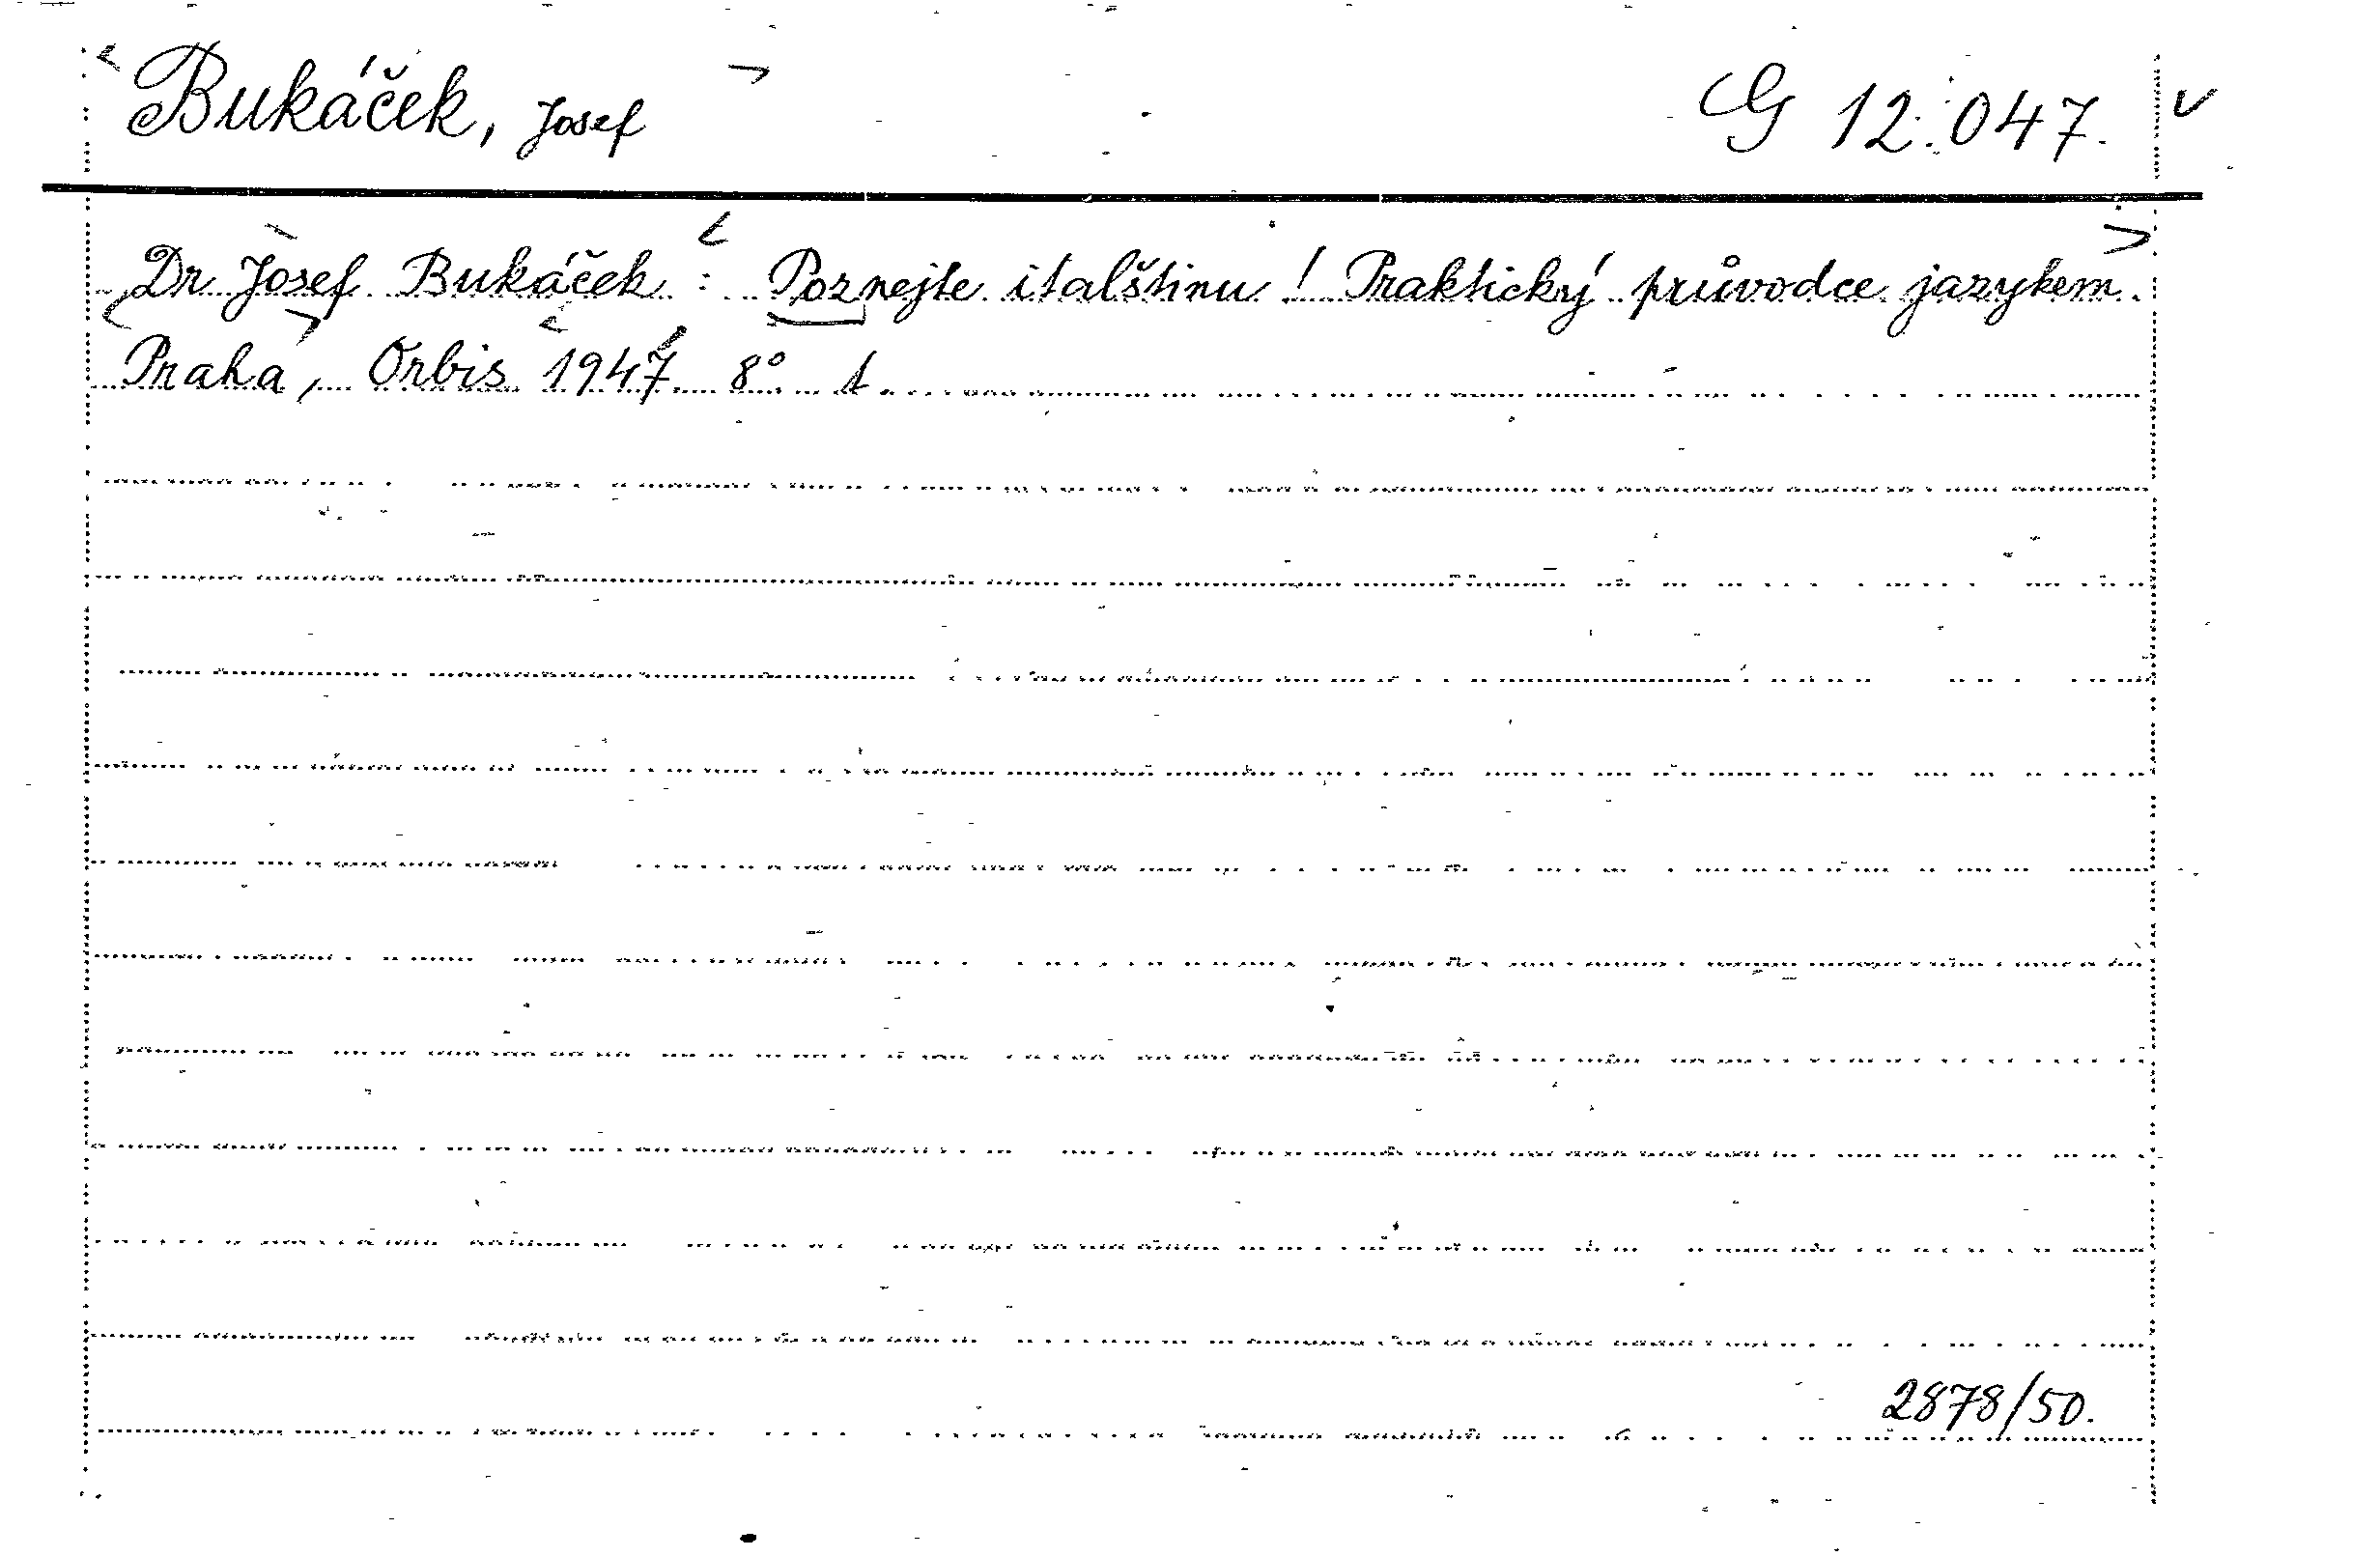 Bukáček, Josef G 12.047. v
Dr Josef Bukáček : Poznejte italštinu! Praktický průvodce jazykem.
Praha, Orbis 1947. 8° 1.
2878/50.